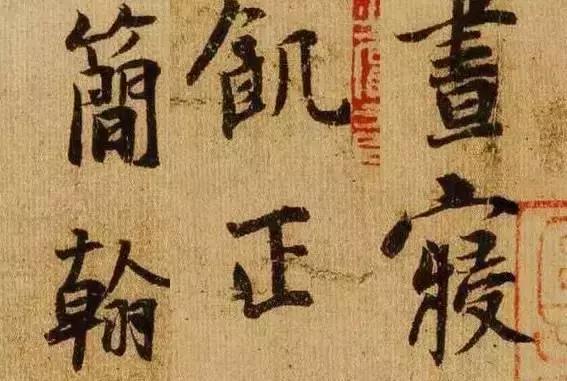 晝寢
飢正
簡翰